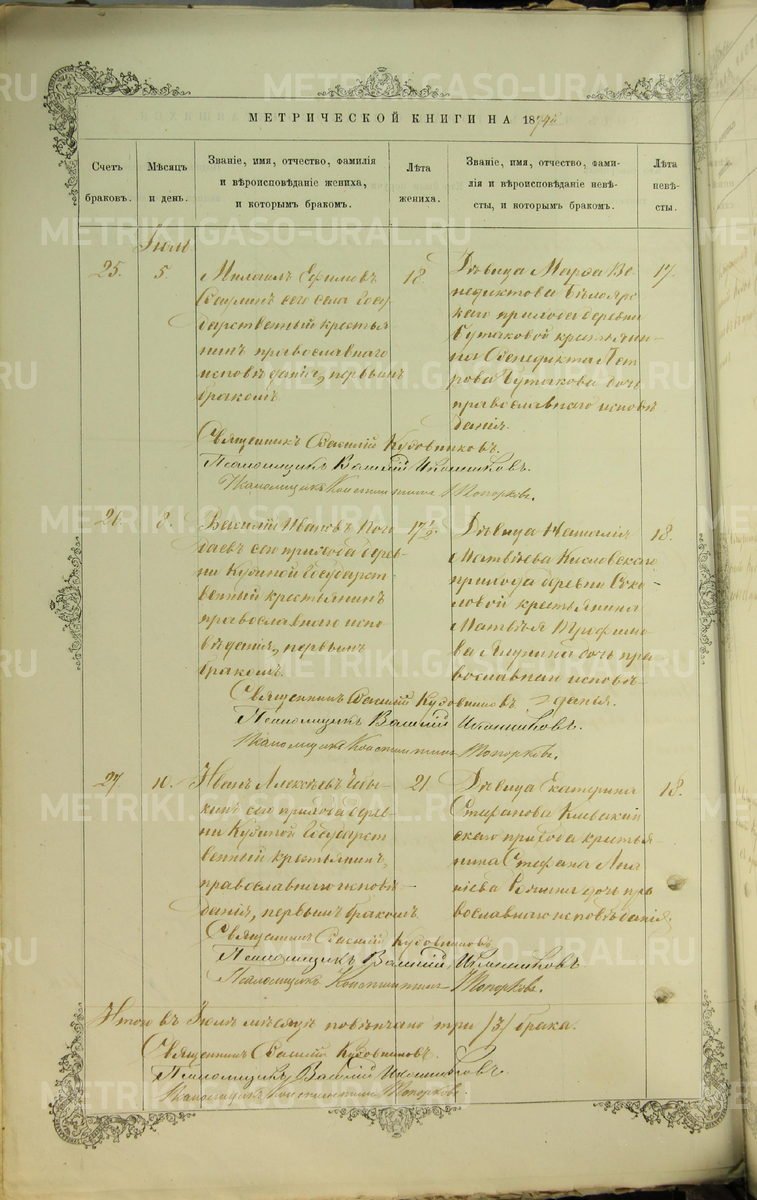 МЕТРИЧЕСКОЙ КНИГИ НА 187
Счетъ браковъ.
Мѣсяцъ и день.
Званіе, имя, отчество, фамилія
и вѣроисповѣданіе жениха,
и которымъ бракомъ.
Лѣта жениха.
Званіе, имя, отчество, фами-
лія и вѣроисповѣданіе невѣ-
сты, и которымъ бракомъ.
Лѣта невѣ-
сты.
25.
5.
Михаилъ Ефимовъ
сего села Госу
дарственный крестья
нинъ православнаго
исповѣданія, первымъ
бракомъ.
18
Дѣвица Марѳа Ве
недиктова Бѣлояр
скаго прихода деревни
крестьянин
Венедикта Пет
рова дочь
православнаго исповѣ
данія.
17.
Священникъ Василій Кудовниковъ.
Псаломщикъ Василій Иконниковъ.
Псаломщикъ Константинъ Топорковъ.
26.
8.
Василій Ивановъ
сего прихода дерев
ни Кудиной Государст
венный крестьянинъ
православнаго испо
вѣданія, первымъ
бракомъ.
17½
Дѣвица Наталія
Матвѣева Кисловскаго
прихода деревни Соко
ловой крестьянина
Матвѣя Трофимо
ва дочь пра
вославнаго исповѣ-
данія.
18.
Священникъ Василій Кудовниковъ
Псаломщикъ Василій Иконниковъ.
Псаломщикъ Константинъ Топорковъ.
27
10.
Иванъ Алексѣевъ
сего прихода дерев
ни Кудиной Государст
венный крестьянинъ,
православнаго исповѣ-
данія, первымъ бракомъ.
21
Дѣвица Екатерина
Стефанова
скаго прихода крестья
нина Стефана
дочь пра
вославнаго исповѣданія.
18.
Священникъ Василій Кудовниковъ
Псаломщикъ Василій Иконниковъ
Псаломщикъ Константинъ Топорковъ.
Итого въ мѣсяцѣ повѣнчано три /3/ брака.
Священникъ Василій Кудовниковъ.
Псаломщикъ Василій Иконниковъ.
Псаломщикъ Константинъ Топорковъ.
METRIKI.GASO-URAL.RU